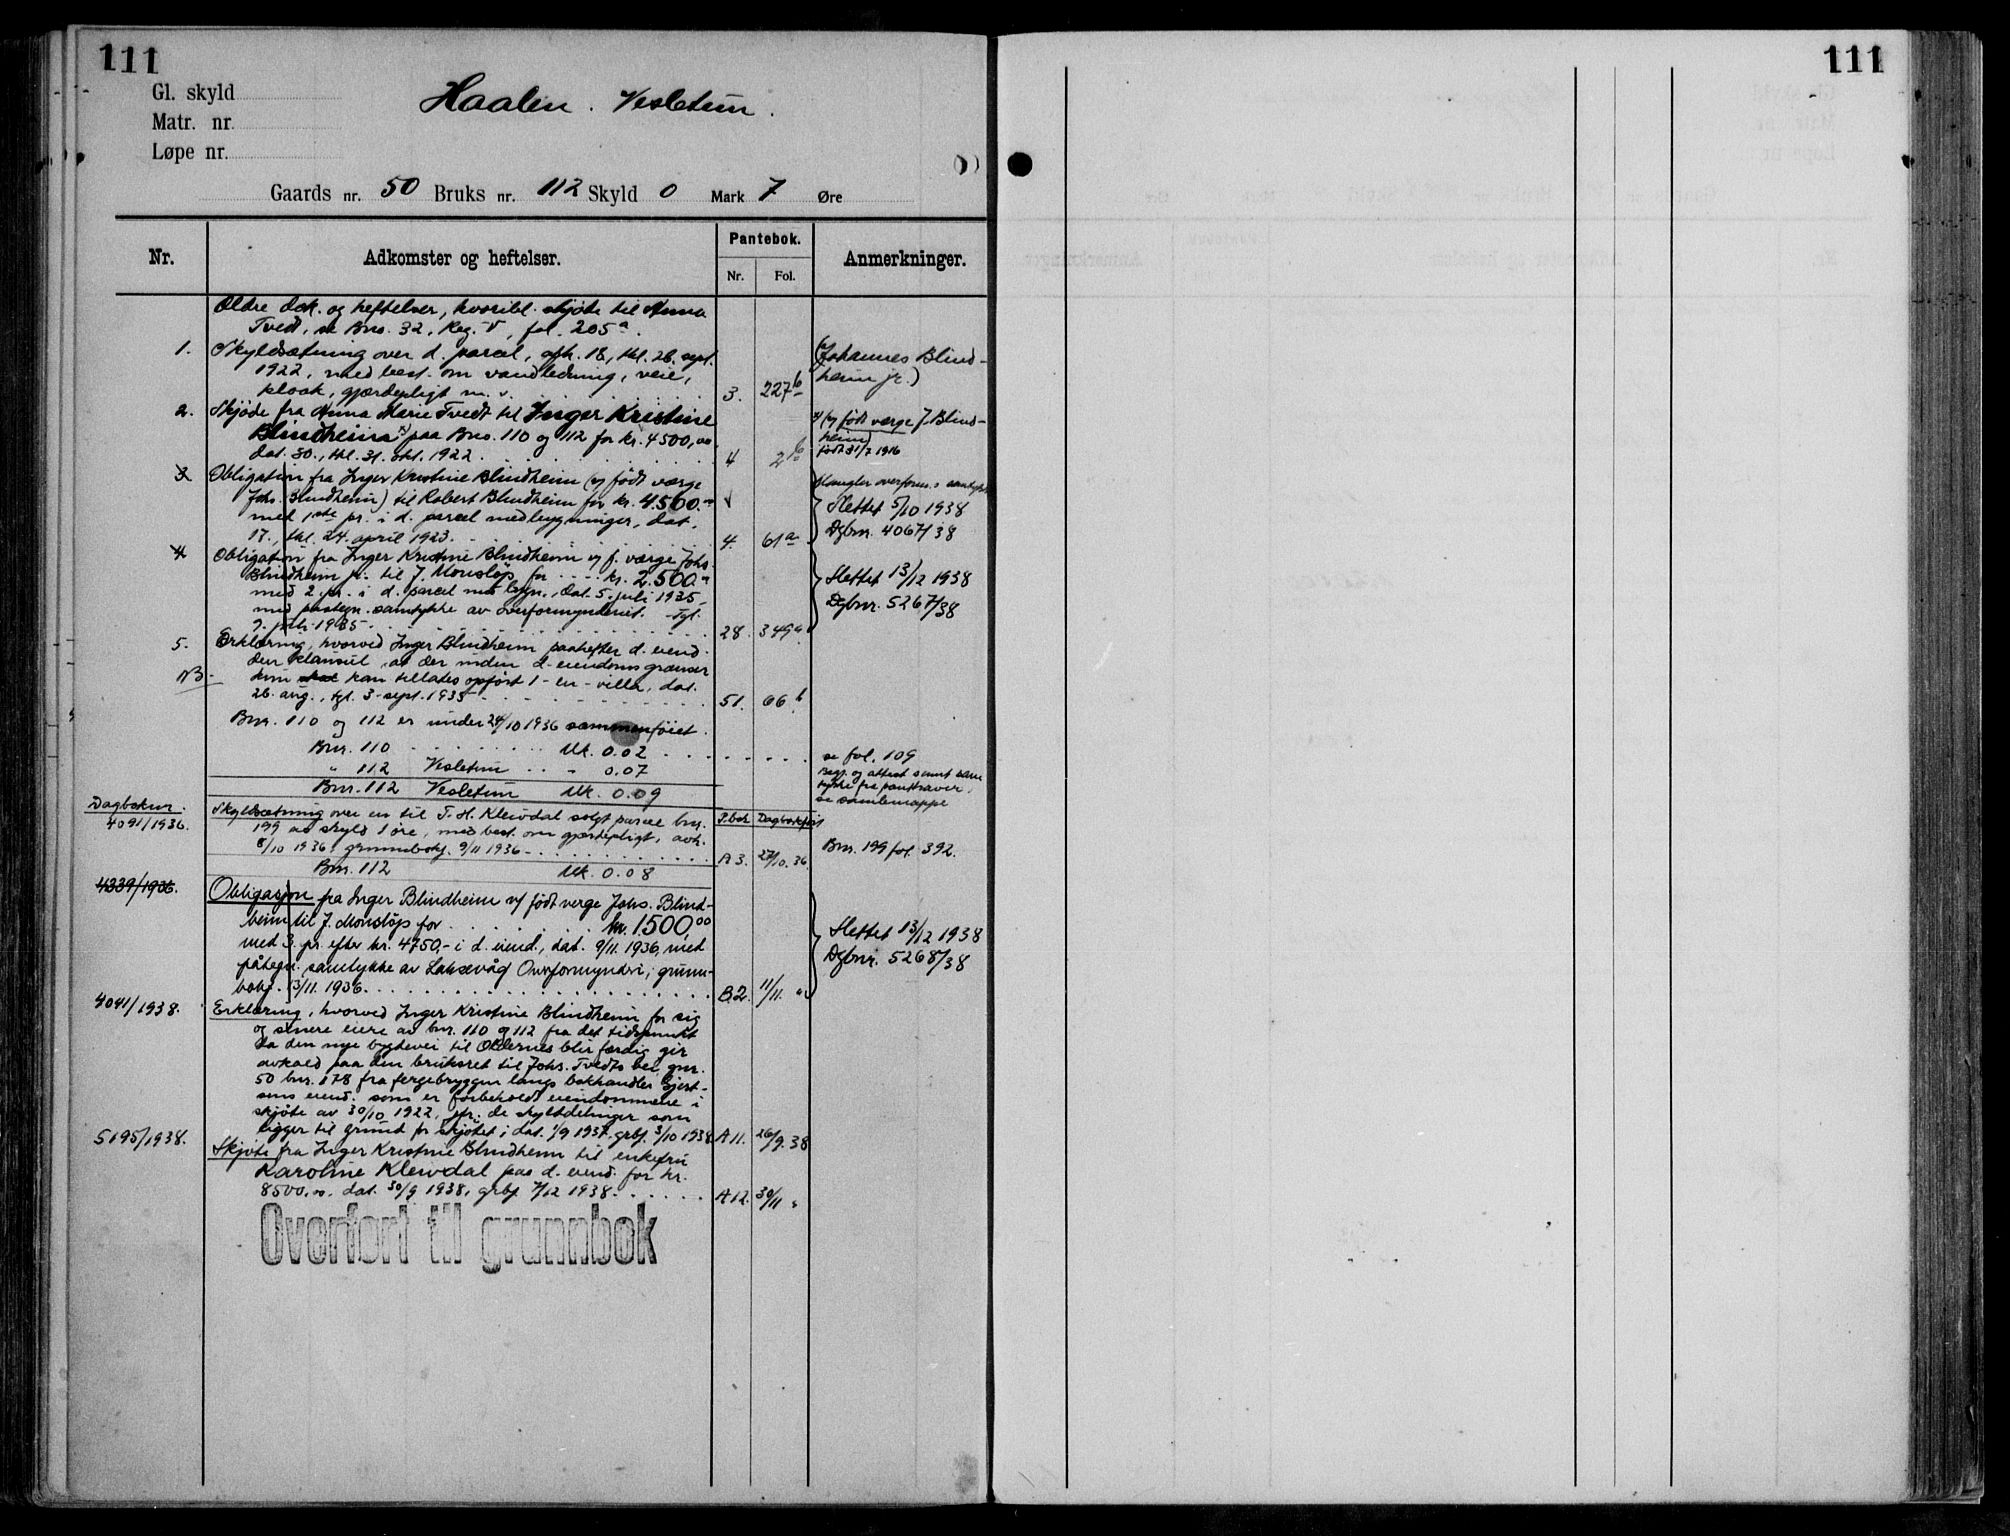 111
111
Gl. skyld
Haalen. Vesletun.
Matr. nr.
Løpe nr.
Gaards nr. 50 Bruks nr. 112 Skyld 0 Mark 7 Øre
Nr. Adkomster og heftelser. Pantebok. Anmerkninger.
Nr. Fol.
Ældre dok. og heftelser, hvoribl. skjøte til Anna
Tvedt, se Bno. 32, Reg. V, fol. 205a.
1. Skyldsætning over d. parcel, afh. 18, thl. 26. sept.
1922, med best. om vandledning, veie,
kloak, gjærdepligt m. v. 3. 227b
(Johannes Blind-
heim jr.)
2. Skjøde fra Anna Marie Tvedt til Inger Kristine
Blindheim x) paa Bno. 110 og 112 for kr. 4500,00
dat. 30., thl. 31. okt. 1922. 4 2b
x) v/ født værge J. Blind-
heim
født 31/7 1916
3 Obligation fra Inger Kristine Blindheim (v/ født værge
Johs. Blindheim) til Robert Blindheim for kr. 4500.-
med 1ste pr. i d. parcel med bygninger, dat.
17., thl. 24. april 1923. 4. 61a
Mangler overform.s samtykke
Slettet 5/10 1938
Dgbnr. 4067/38
4 Obligation fra Inger Kristine Blindheim v/ f. værge Johs.
Blindheim jr. til J. Monsløp for kr. 2.500.-
med 2. pr. i d. parcel med bygn., dat. 5. juli 1935,
med paategn. samtykke av overformynderiet. Tgl.
9. juli 1935. 28. 349a
Slettet 13/12 1938
Dgbnr. 5267/38
5. Erklæring, hvorved Inger Blindheim paahefter d. eiend.
den klausul, at der inden d. eiendoms grænser
NB. kun kan tillates opført 1 - en - villa, dat.
26. aug., tgl. 3. sept. 1935 51. 66b
Bnr. 110 og 112 er under 24/10 1936 sammenføiet.
Bnr. 110 Mk. 0.02 se fol. 109
" 112 Vesletun - 0.07
Bnr. 112 Vesletun Mk. 0.09
Begj. og attest samt sam
tykke fra panthaver,
se samlemappe
Dagboknr.
4091/1936.
Skyldsætning over en til T. H. Kleivdal solgt parcel bnr.
199 av skyld 1 øre, med best. om gjærdepligt, avh.
8/10 1936, grunnbokf. 9/11 1936
P.bok Dagbokført
A 3. 27/10. 36
Bnr. 199 fol. 392.
Bnr. 112 Mk. 0.08
4339/1936.
Obligasjon fra Inger Blindheim v/ født verge Johs. Blind-
heim til J. Monsløp for kr. 1500,00
med 3. pr. efter kr. 4750,- i d. eiend., dat. 9/11. 1936, med
påtegn. samtykke av Laksevåg Overformynderi, grunn-
bokf. 13/11. 1936. B.2. 11/11. "
Slettet 13/12 1938
Dgbnr. 5268/38
4041/1938.
Erklæring, hvorved Inger Kristine Blindheim for sig
og senere eiere av bnr. 110 og 112 fra det tidspunkt
da den nye bygdevei til Oldernes blir færdig gir
avkald paa den bruksret til Johs. Tvedts vei, gnr.
50 bnr. 178 fra fergebryggen langs bokhandler Gjert-
sens eiend. som er forbeholdt eiendommene i
skjøte av 30/10 1922, jfr. de skylddelinger som
ligger til grund for skjøtet, dat. 1/9 1937. grbf. 3/10 1938. A 11. 26/9. 38
5195/1938.
Skjøte fra Inger Kristine Blindheim til enkefru
Karoline Kleivdal paa d. eiend. for kr.
8500,00. dat. 30/9 1938, grbf. 7/12 1938. A 12. 30/11 "
Overført til grunnbok